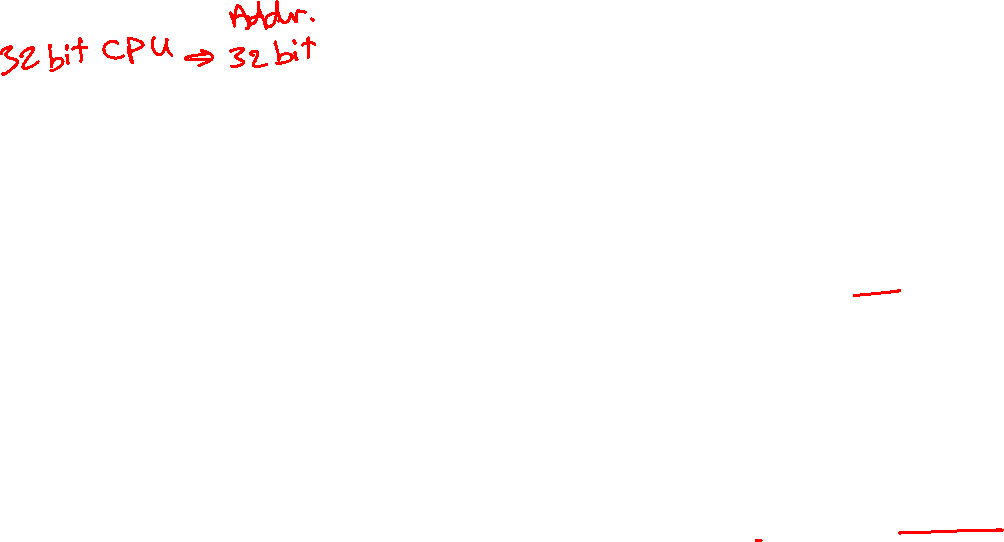 Addr.
32 bit CPU ⇒ 32 bit